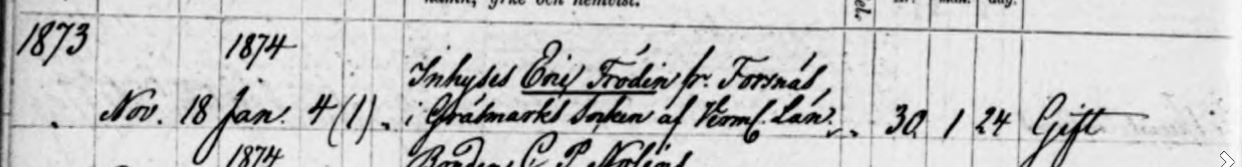 namn, yrke och hemvist. del. år. mån. dag.
1873 1874
Inhyses Eric Frödin fr. Forsnäs,
Nov. 18 Jan. 4 (1) i Gräsmarks Socken af Verml. Län. 30 1 24 Gift
1874 Bonden C. P. Nolins